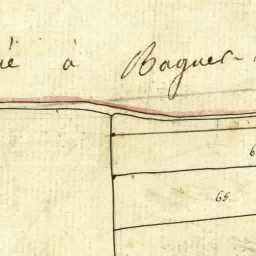 é à Baguer-
6
65